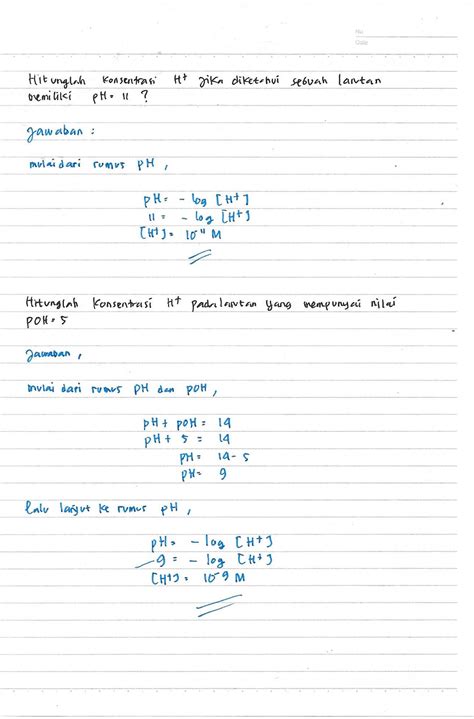 No
Date
Hitunglah konsentrasi H⁺ jika diketahui sebuah larutan
memiliki pH = 11 ?
Jawaban :
mulai dari rumus pH,
pH = - log [H⁺]
11 = - log [H⁺]
[H⁺] = 10⁻¹¹ M
Hitunglah konsentrasi H⁺ pada larutan yang mempunyai nilai
pOH = 5
Jawaban,
mulai dari rumus pH dan pOH,
pH + pOH = 14
pH + 5 = 14
pH = 14 - 5
pH = 9
lalu lanjut ke rumus pH,
pH = - log [H⁺]
9 = - log [H⁺]
[H⁺] = 10⁻⁹ M